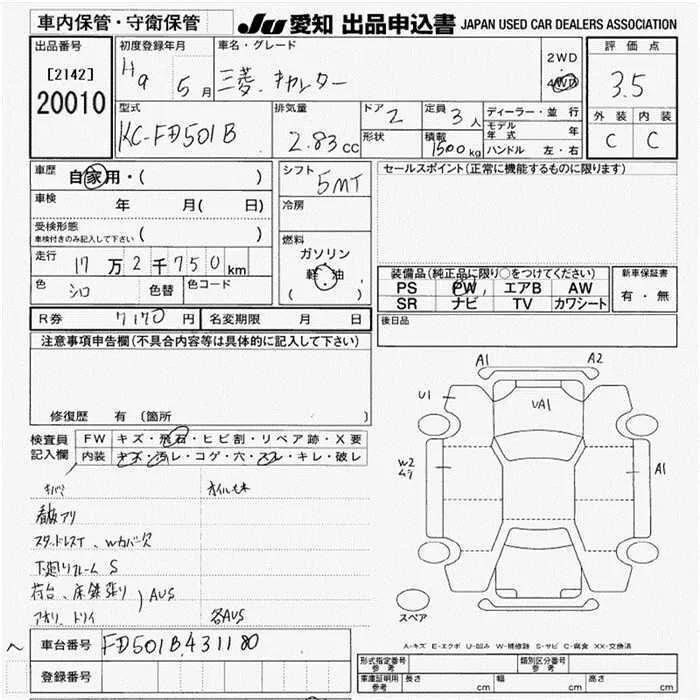 車内保管・守衛保管
JU 愛知 出品申込書 JAPAN USED CAR DEALERS ASSOCIATION
出品番号
[2142]
20010
初度登録年月
H9 5月
車名・グレード
三菱.キャンター
2WD
・
4WD
評価点
3.5
外装 内装
C C
型式
KC-FD501B
排気量
2.83cc
ドア 2
形状
定員 3人
積載 1500kg
ディーラー・並行
モデル年式 年
ハンドル 左・右
車歴 自家用・( )
車検 年 月( 日)
受検形態
車検付きのみ記入して下さい ( )
走行 17万2千750km
色 シロ 色替 色コード
シフト 5MT
冷房
燃料
ガソリン
軽・油
( )
セールスポイント(正常に機能するものに限ります)
装備品(純正品に限り○をつけてください)
PS PW エアB AW
SR ナビ TV カワシート
新車保証書
有・無
R券 7170円 名変期限 月 日
後日品
注意事項申告欄(不具合内容等は具体的に記入して下さい)
修復歴 有 (箇所
検査員
記入欄
FW キズ・飛石・ヒビ割・リペア跡・X要
内装 キズ・汚レ・コゲ・穴・スレ・キレ・破レ
オイルモレ
看板アリ
スタッドレスT、Wカバー欠
下廻りフレームS
荷台、床鉄張り
アオリ、ドライ
AUS
各AUS
A1 A2
U1
UA1
W2
ムラ
A1
スペア
車台番号 FD501B431180
登録番号
A-キズ E-エクボ U-凹み W-補修跡 S-サビ C-腐食 XX-交換済
形式指定番号
参考
類別区分番号
参考
車庫証明用
参考
長さ cm 幅 cm 高さ cm